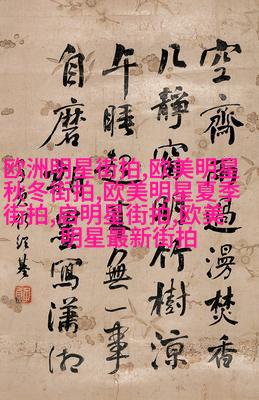 欧洲明星街拍,欧美明星
秋冬街拍,欧美明星夏季
街拍,后明星街拍,欧美
明星最新街拍
空齋過漫焚香
几靜窗明竹樹涼
午睡無一事
自磨寫瀟湘